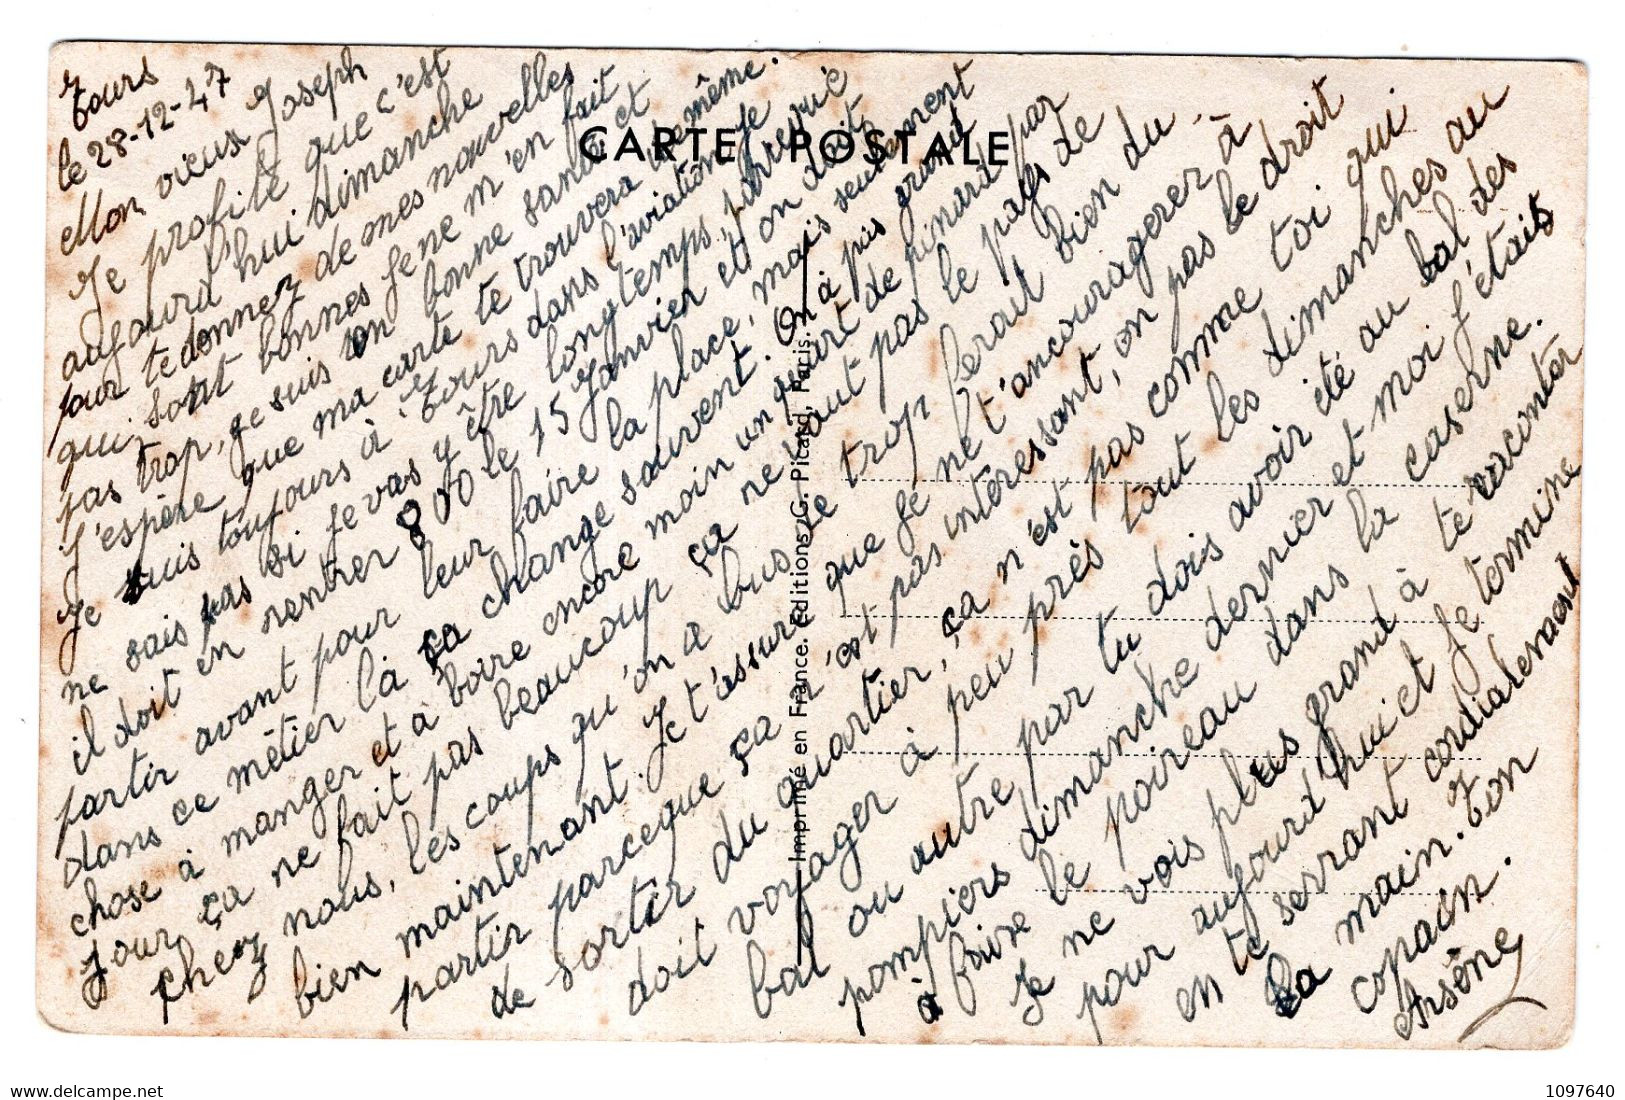 Tours
le 28-12-47
Mon vieux Joseph
Je profite que c'est
aujourd'hui dimanche
pour te donnez de mes nouvelles
qui sont bonnes je ne m'en fait
pas trop, je suis en bonne santé et
J'espère que ma carte te trouvera de même.
Je suis toujours à Tours dans l'aviation je
ne sais pas si je vas y être longtemps, parce que
il doit en rentrer 800 le 15 Janvier et on doit
partir avant pour leur faire la place, mais seulement
dans ce métier là ça change souvent. On à pas grand
chose à manger et à boire encore moin un quart de pinard par
jour ça ne fait pas beaucoup ça ne vaut pas le pays de
chez nous, les coups qu'on a bus se trop ferait bien du
bien maintenant. Je t'assure que je ne t'ancouragerez à
partir parceque ça n'est pas intéressant, on pas le droit
de sortir du quartier, ça n'est pas comme toi qui
doit voyager à peu près tout les dimanches au
bal ou autre part tu dois avoir été au bal des
pompiers dimanche dernier et moi j'étais
à boire le poireau dans la caserne.
Je ne vois plus grand à te raconter
pour aujourd'hui et je termine
en te serrant cordialement
la main. Ton
copain.
Arsène
CARTE POSTALE
Imprimé en France. Editions G. Picard, Paris.
1097640
delcampe.net